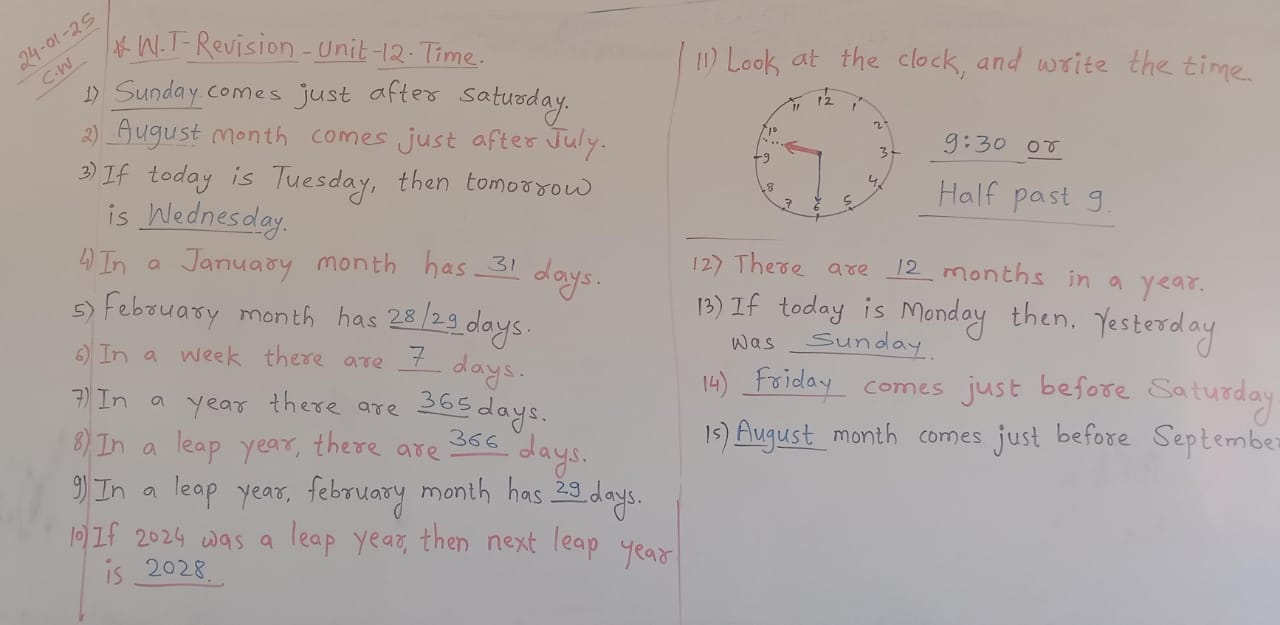 24-01-25
C.W
* W.T-Revision-Unit-12. Time.
1) Sunday comes just after Saturday.
2) August month comes just after July.
3) If today is Tuesday, then tomorrow
is Wednesday.
4) In a January month has 31 days.
5) February month has 28/29 days.
6) In a week there are 7 days.
7) In a year there are 365 days.
8) In a leap year, there are 366 days.
9) In a leap year, february month has 29 days.
10) If 2024 was a leap year, then next leap year
is 2028.
11) Look at the clock, and write the time.
12
1
2
3
4
5
6
7
8
9
10
11
9:30 or
Half past 9.
12) There are 12 months in a year.
13) If today is Monday then, Yesterday
was Sunday.
14) Friday comes just before Saturday
15) August month comes just before September